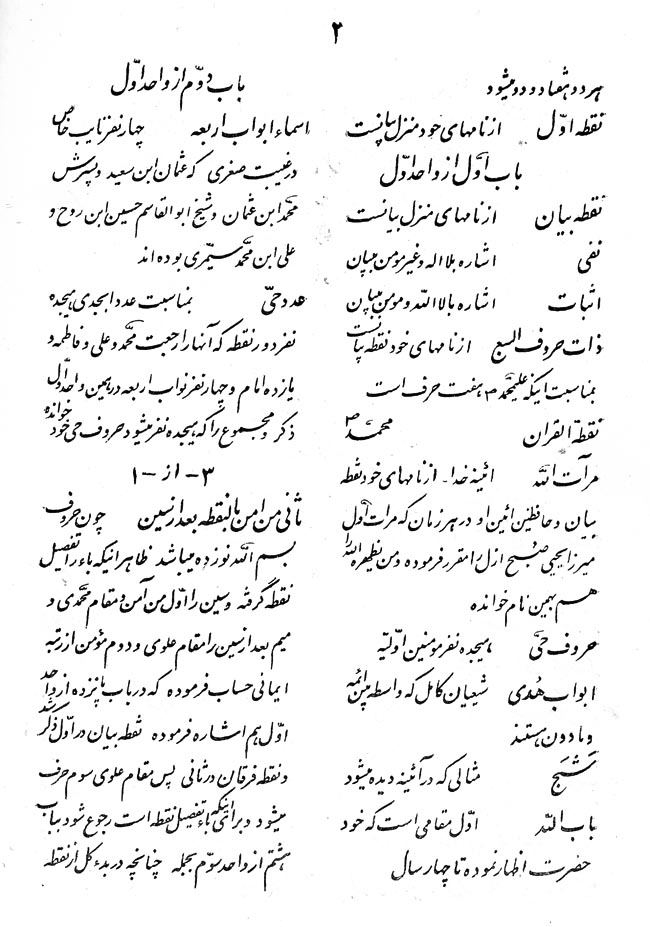 ۲
هر دو هشتاد و دو میشود
نقطه اوّل از نامهای خود منزل بیانست
باب اوّل از واحد اوّل
نقطه بیان از نامهای منزل بیانست
نفی اشاره بلا اله و غیر مومن ببیان
اثبات اشاره بالا الله و مومن ببیان
ذات حروف السبع از نامهای خود نقطه بیانست
بمناسبت اینکه علیمحمد هفت حرف است
نقطة القران محمد ص
مرآت الله ائینه خدا - از نامهای خود نقطه
بیان و حافظین ائین او در هر زمان که مرات اول
میرزا یحیی صبح ازل را مقرر فرموده و من یظهره الله را
هم بهمین نام خوانده
حروف حیّ هیجده نفر مومنین اوّلیه
ابواب هُدی شیعیان کامل که واسطه بین ائمه
و مادون هستند
شَبَح مثالی که در آئینه دیده میشود
باب الله اوّل مقامی است که خود
حضرت اظهار نموده تا چهار سال
باب دوّم از واحد اوّل
اسماء ابواب اربعه چهار نفر نایب خاص
در غیبت صغری که عثمان ابن سعید و پسرش
محمد ابن عثمان و شیخ ابوالقاسم حسین ابن روح و
علی ابن محمد سیمّری بوده اند
عدد حیّ بمناسبت عدد ابجدی هیجده
نفر دور نقطه که آنها را رجعت محمد و علی و فاطمه و
یازده امام و چهار نفر نواب اربعه در همین واحد اول
ذکر و مجموع را که هیجده نفر میشود حروف حی خود خوانده
۳ - از - ۱
ثانی من امن بالنقطه بعد از سین چون حروف
بسم الله نوزده میباشد ظاهرا اینکه باء را تفصیل
نقطه گرفته و سین را اول من آمن و مقام محمدی و
میم بعد از سین را مقام علوی و دوم مؤمن از رتبه
ایمانی حساب فرموده که در باب پانزده از واحد
اوّل هم اشاره فرموده نقطه بیان در اوّل ذکر شد
و نقطه فرقان در ثانی پس مقام علوی سوم حرف
میشود و برای اینکه باء تفصیل نقطه است رجوع شود بباب
هشتم از واحد سوّم بجمله چنانچه در بدء کل از نقطه